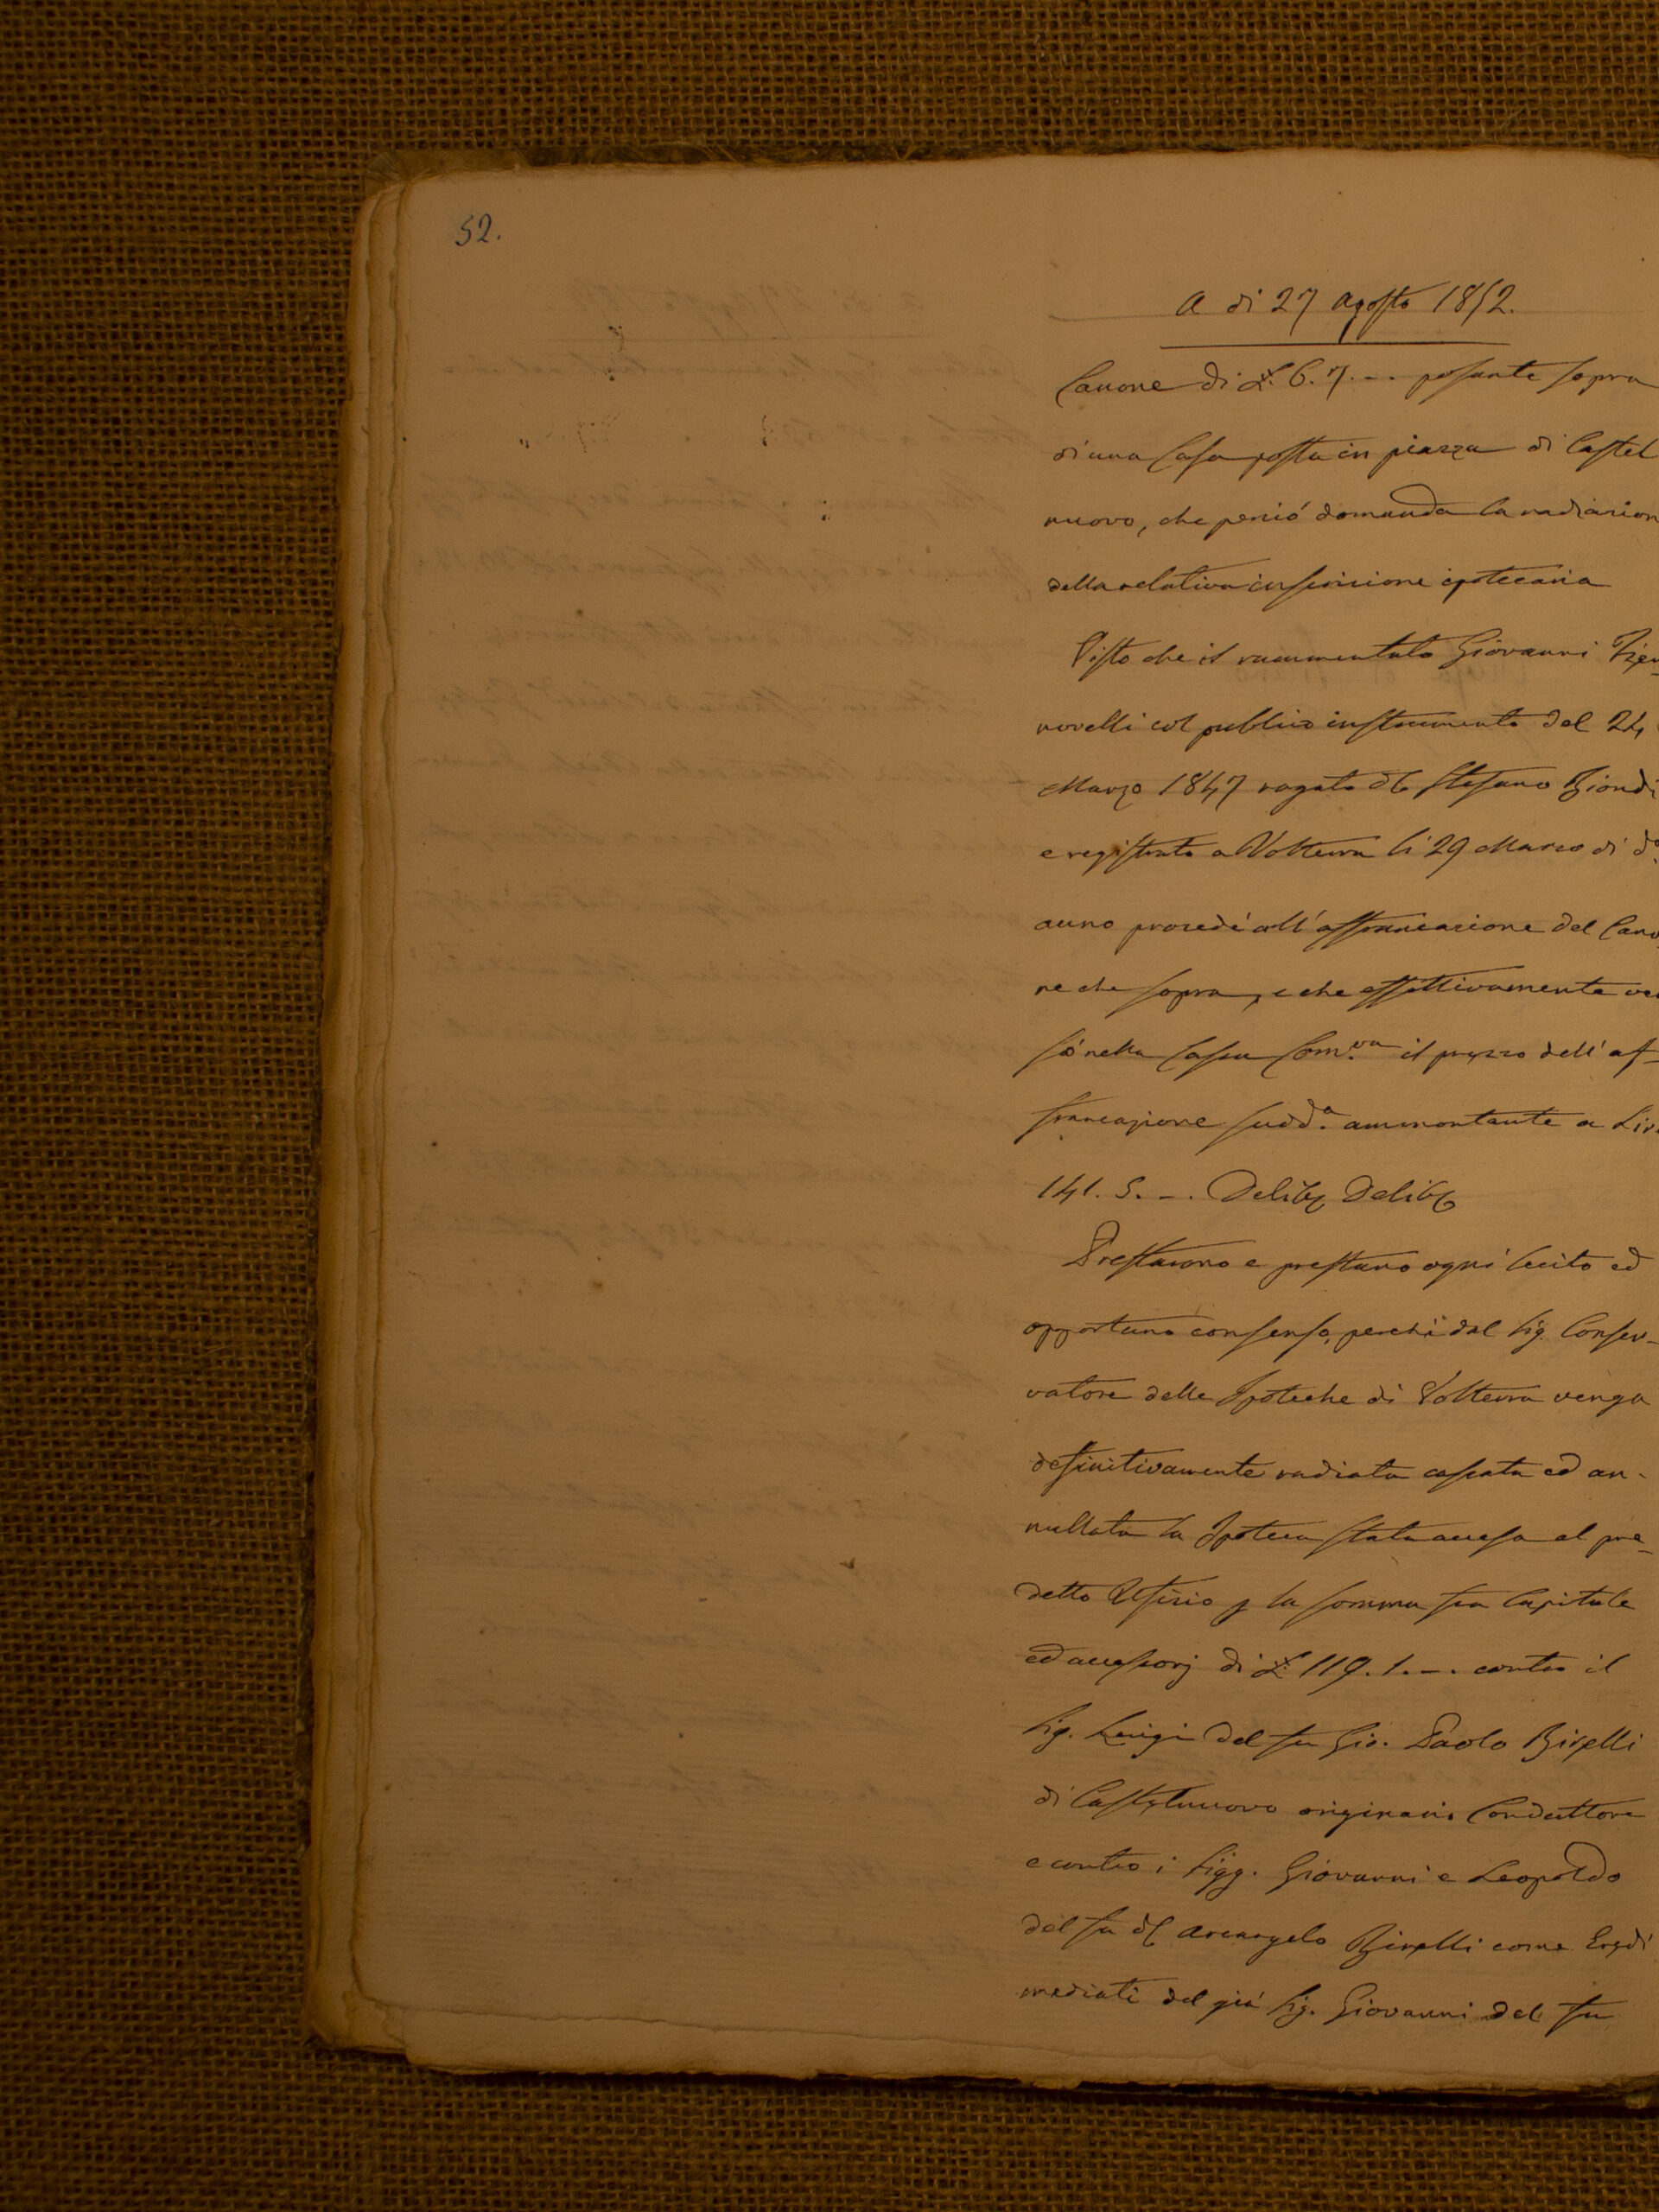 52.
A di 27 Agosto 1852.
Canone di £. 6. 7. -. posante sopra
di una Casa posta in piazza di Castel
nuovo, che perciò domanda la radiazion
della relativa inscrizione ipotecaria
Visto che il rammentato Giovanni
novelli col publico instrumento del 24
Marzo 1847 rogato Stefano Biondi
e registrato a Volterra li 29 Marzo di do.
anno procedè all'affrancazione del Cano
ne che sopra, e che effettivamente ver
sò nella Cassa Com.va il prezzo dell'af-
francazione sudd.a ammontante a Lir
141. 5. -. Delib. Delib.
Prestarono e prestano ogni lecito ed
opportuno consenso, perchè dal Sig. Conser-
vatore delle Ipoteche di Volterra venga
definitivamente radiata cassata ed an-
nullata la Ipoteca stata accesa al pre-
detto Ufizio p la somma fra Capitale
ed accessorj di £ 119. 1. -. contro il
Sig. Luigi del fu Gio. Paolo Birelli
di Castelnuovo originario Conduttore
e contro i Sigg. Giovanni e Leopoldo
del fu Arcangelo Birelli come Eredi
mediati del già Sig. Giovanni del fu